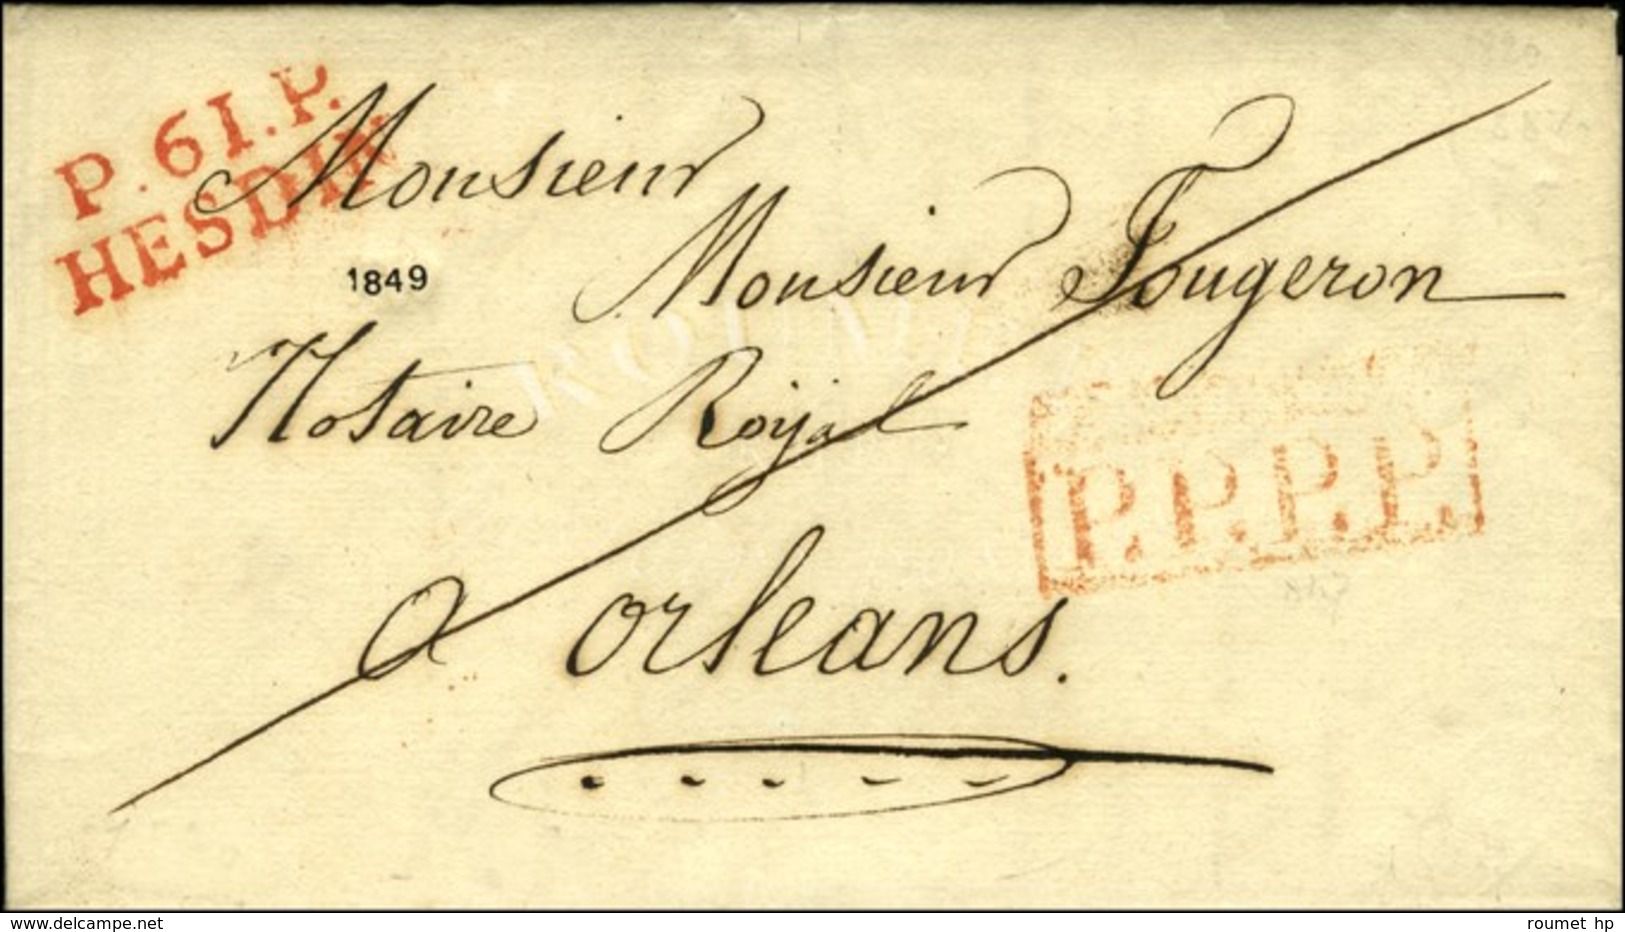 P.61.P.
HESDIN
Monsieur
1849
Monsieur Fougeron
Notaire Royal
a orleans.
P.P.P.P.
www.delcampe.net
roumet hp